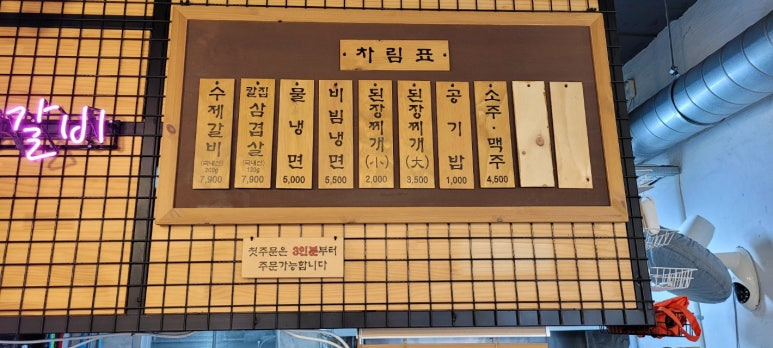 차림표
수제갈비
(국내산)
200g
7,900
칼집
삼겹살
(국내산)
120g
7,900
물냉면
5,000
비빔냉면
5,500
된장찌개
(小)
2,000
된장찌개
(大)
3,500
공기밥
1,000
소주·맥주
4,500
갈비
첫주문은 3인분부터
주문가능합니다